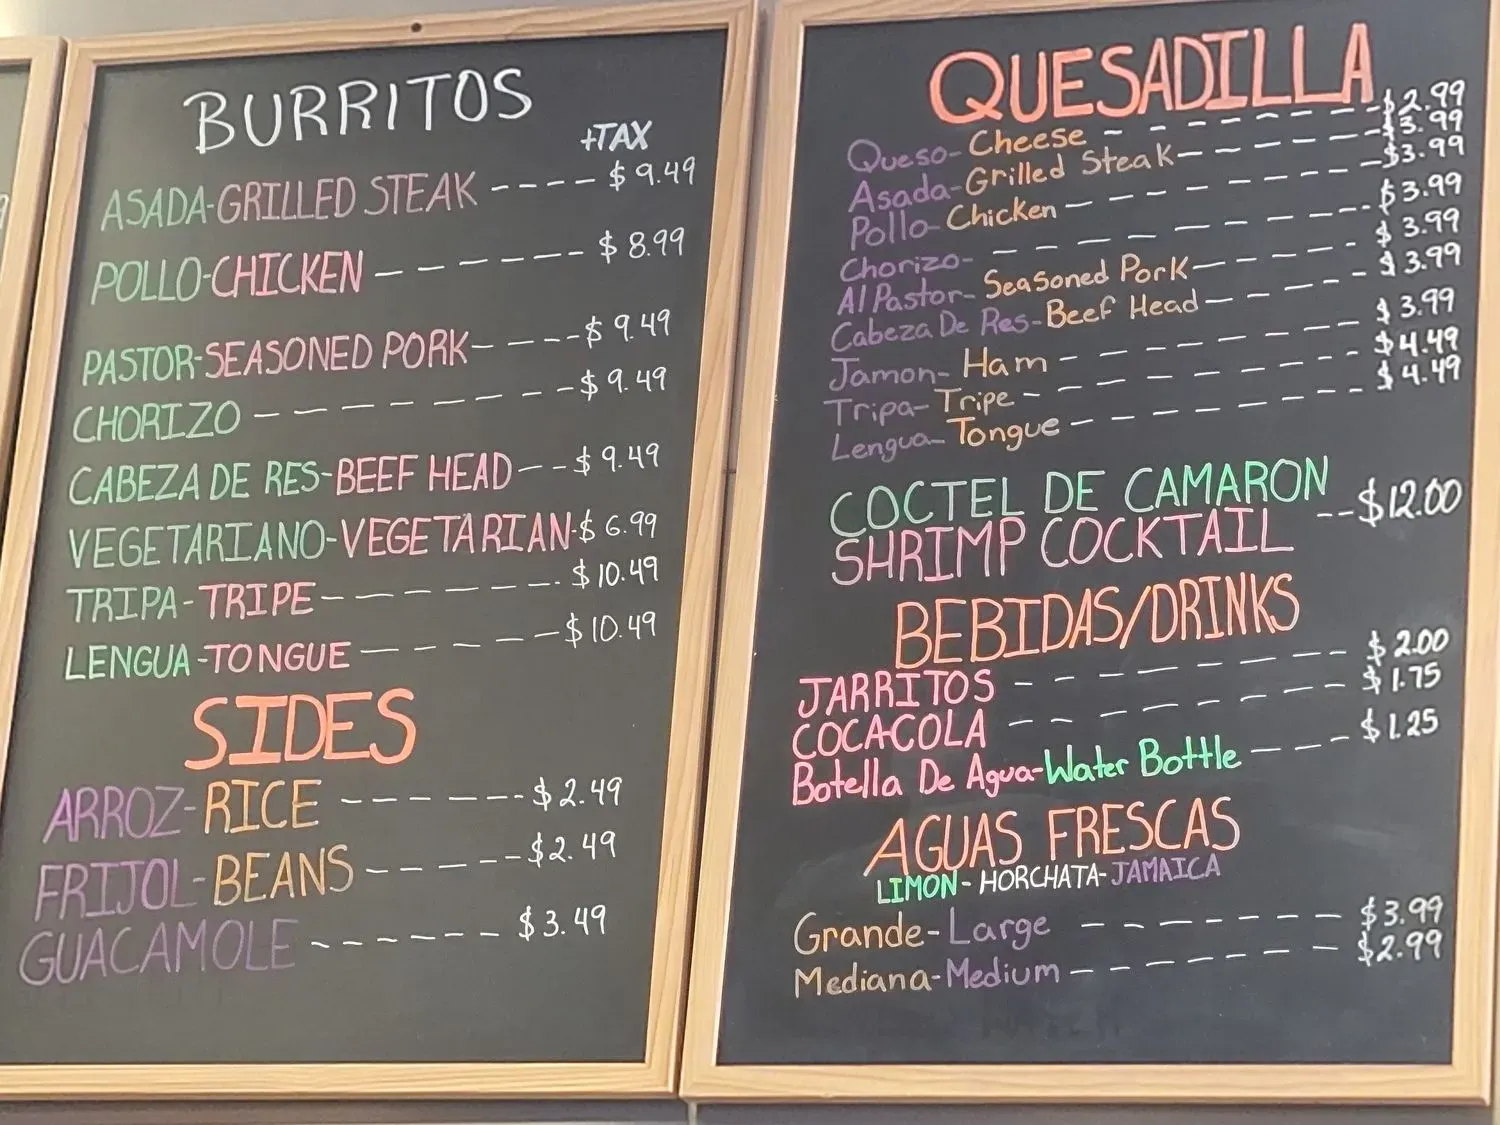 BURRITOS
+TAX
ASADA-GRILLED STEAK ---- $9.49
POLLO-CHICKEN ------- $8.99
PASTOR-SEASONED PORK ---- $9.49
CHORIZO --------- $9.49
CABEZA DE RES-BEEF HEAD -- $9.49
VEGETARIANO-VEGETARIAN-$6.99
TRIPA-TRIPE ------- $10.49
LENGUA-TONGUE ------ $10.49
SIDES
ARROZ-RICE ------- $2.49
FRIJOL-BEANS ------ $2.49
GUACAMOLE ------ $3.49
QUESADILLA
Queso-Cheese ------- $2.99
Asada-Grilled Steak ------ $3.99
Pollo-Chicken -------- $3.99
Chorizo- --------- $3.99
Al Pastor-Seasoned Pork ----- $3.99
Cabeza De Res-Beef Head ----- $3.99
Jamon-Ham -------- $3.99
Tripa-Tripe --------- $4.49
Lengua-Tongue -------- $4.49
COCTEL DE CAMARON
SHRIMP COCKTAIL --$12.00
BEBIDAS/DRINKS
JARRITOS -------- $2.00
COCACOLA -------- $1.75
Botella De Agua-Water Bottle --- $1.25
AGUAS FRESCAS
LIMON-HORCHATA-JAMAICA
Grande-Large ------- $3.99
Mediana-Medium ------- $2.99